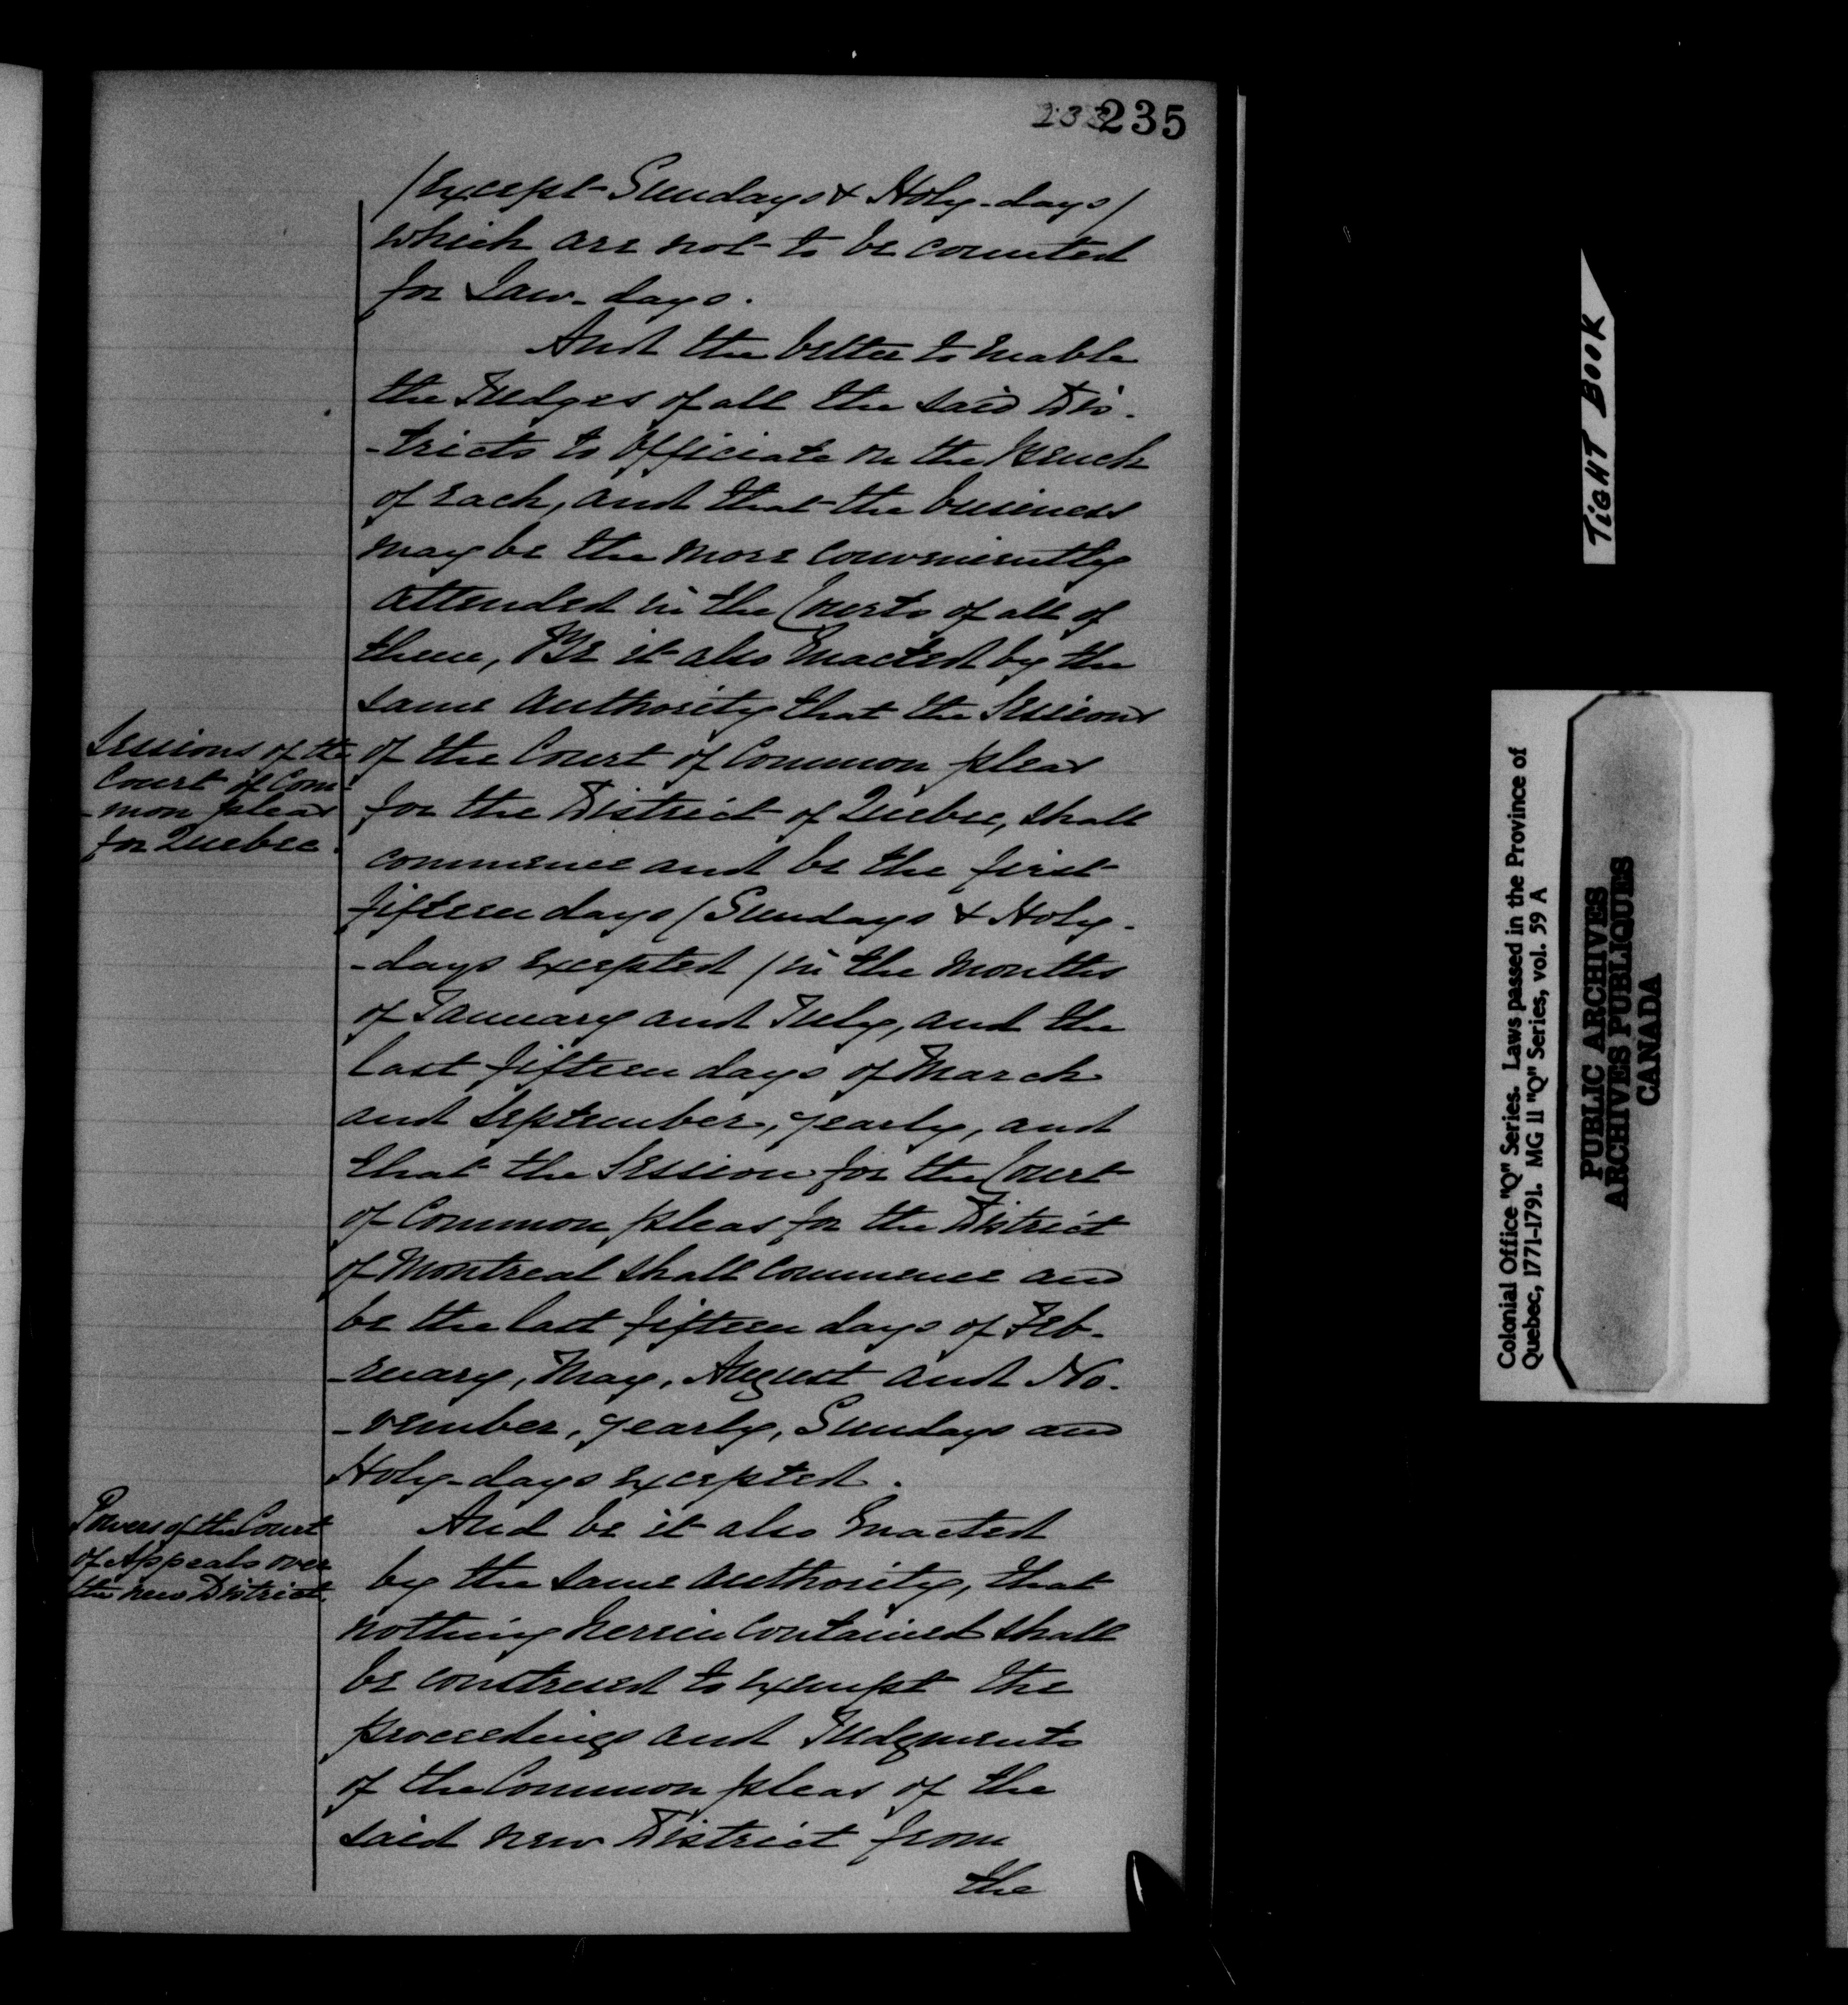 235
(Except Sundays & Holy-days)
which are not to be counted
for Law-days.
And the better to enable
the Judges of all the said Dis-
-tricts to Officiate on the Bench
of each, and that the business
may be the more conveniently
attended in the Courts of all of
them, Be it also Enacted by the
same authority that the Sessions
Sessions of the
Court of Com-
-mon pleas
for Quebec.
of the Court of Common pleas
for the District of Quebec, shall
commence and be the first
fifteen days (Sundays & Holy-
-days excepted) in the months
of January and July, and the
last fifteen days of March
and September, yearly, and
that the Session for the Court
of Common pleas for the District
of Montreal shall commence and
be the last fifteen days of Feb-
-ruary, May, August and No-
-vember, yearly, Sundays and
Holy-days excepted.
Powers of the Court
of Appeals over
the new District.
And be it also Enacted
by the same authority, that
nothing herein contained shall
be construed to exempt the
proceedings and Judgments
of the Common pleas of the
said new District from
the
TIGHT BOOK
Colonial Office "Q" Series. Laws passed in the Province of
Quebec, 1771-1791. MG 11 "Q" Series, vol. 59 A
PUBLIC ARCHIVES
ARCHIVES PUBLIQUES
CANADA